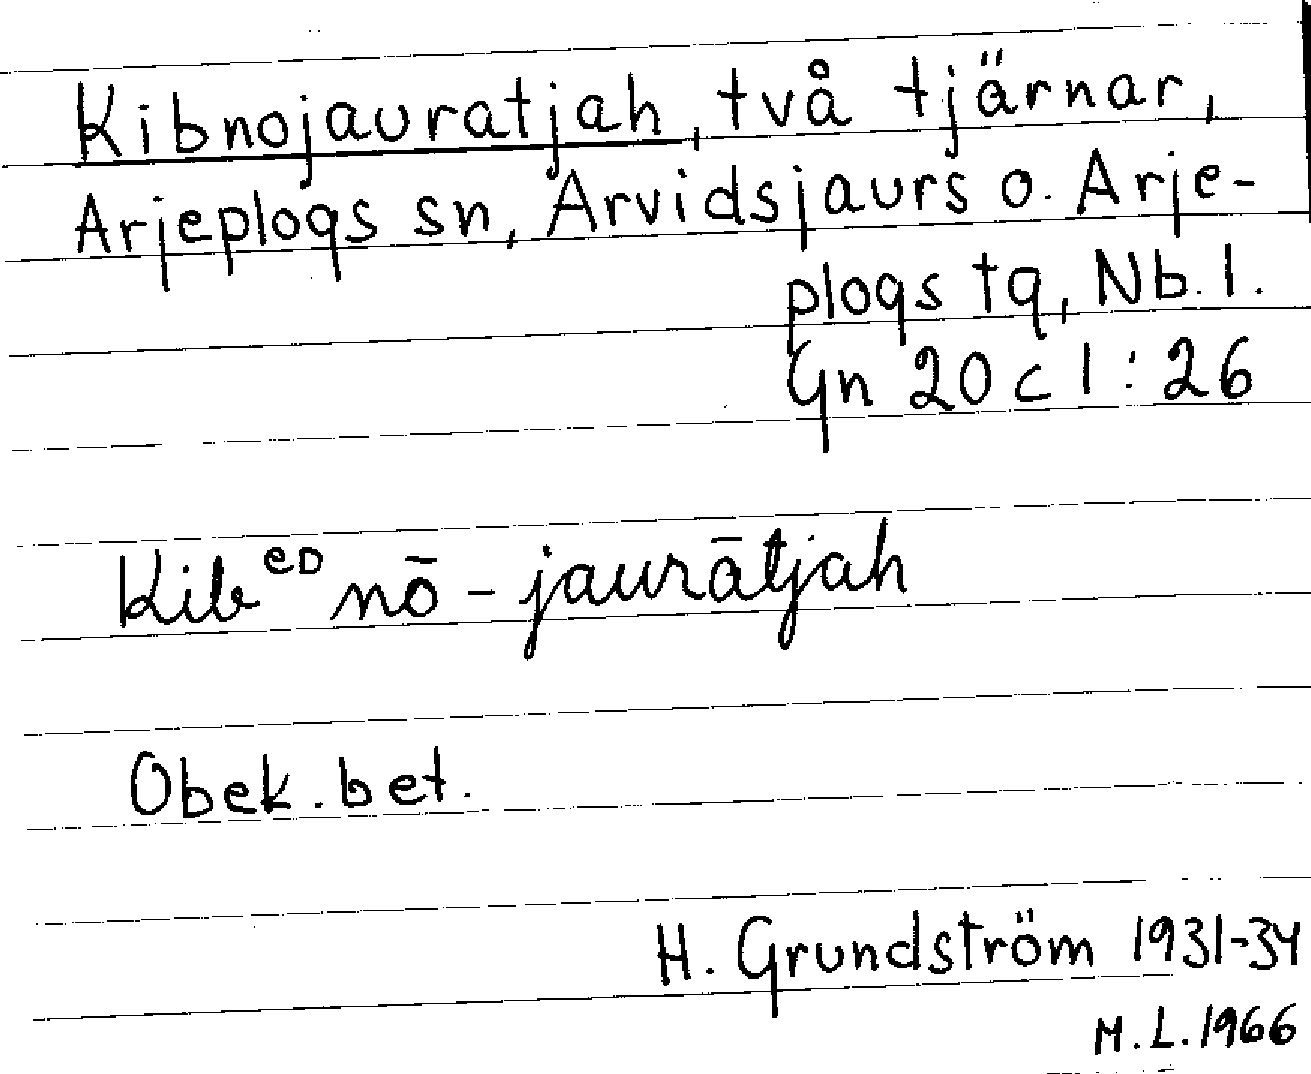 Kibnojauratjah, två tjärnar,
Arjeplogs sn, Arvidsjaurs o. Arje-
plogs tg, Nb. l.
Gn 20 c 1:26
Kibᵉᴰnō-jaurātjah
Obek. bet.
H. Grundström 1931-34
M.L. 1966